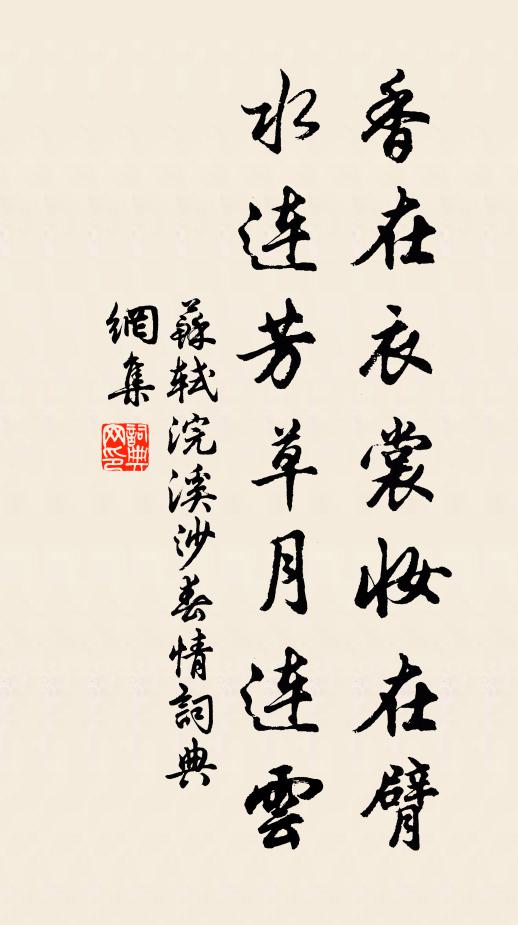 香在衣裳妆在臂
水连芳草月连雲
蘇轼浣溪沙春情詞典
網集
詞典
网印